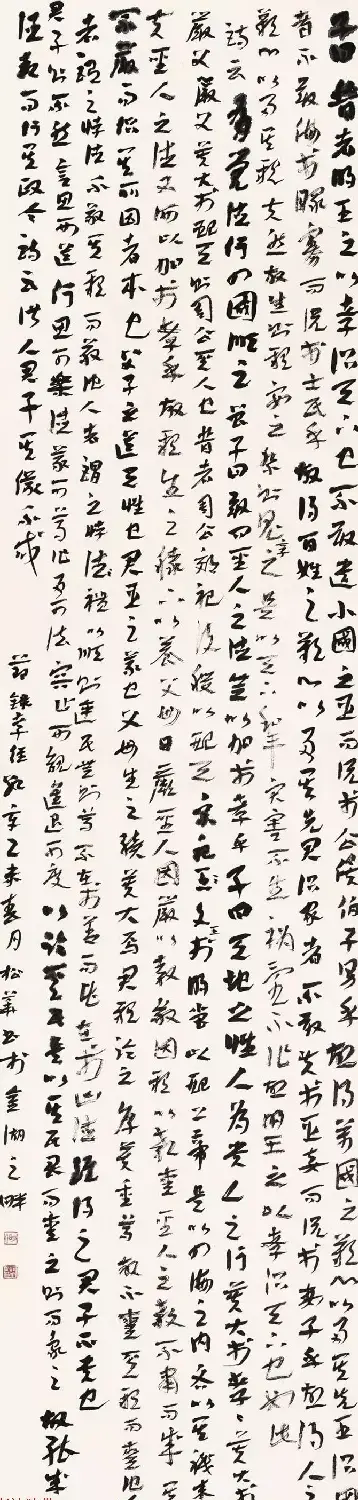 子曰昔者明王之以孝治天下也不敢遺小國之臣而況於公侯伯子男乎故得萬國之歡心以事其先王治國
者不敢侮於鰥寡而況於士民乎故得百姓之歡心以事其先君治家者不敢失於臣妾而況於妻子乎故得人之
歡心以事其親夫然故生則親安之祭則鬼享之是以天下和平災害不生禍亂不作故明王之以孝治天下也如此
詩云有覺德行四國順之曾子曰敢問聖人之德無以加於孝乎子曰天地之性人為貴人之行莫大於孝孝莫大於
嚴父嚴父莫大於配天則周公其人也昔者周公郊祀后稷以配天宗祀文王於明堂以配上帝是以四海之內各以其職來
夫聖人之德又何以加於孝乎故親生之膝下以養父母日嚴聖人因嚴以教敬因親以教愛聖人之教不肅而成其
不嚴而治其所因者本也父子之道天性也君臣之義也父母生之續莫大焉君親臨之厚莫重焉故不愛其親而愛他人
者謂之悖德不敬其親而敬他人者謂之悖禮以順則逆民無則焉不在於善而皆在於凶德雖得之君子不貴也
君子則不然言思可道行思可樂德義可尊作事可法容止可觀進退可度以臨其民是以其民畏而愛之則而象之故能成
德教而行其政令詩云淑人君子其儀不忒
節錄孝經乙未春月松華書於金湖之畔